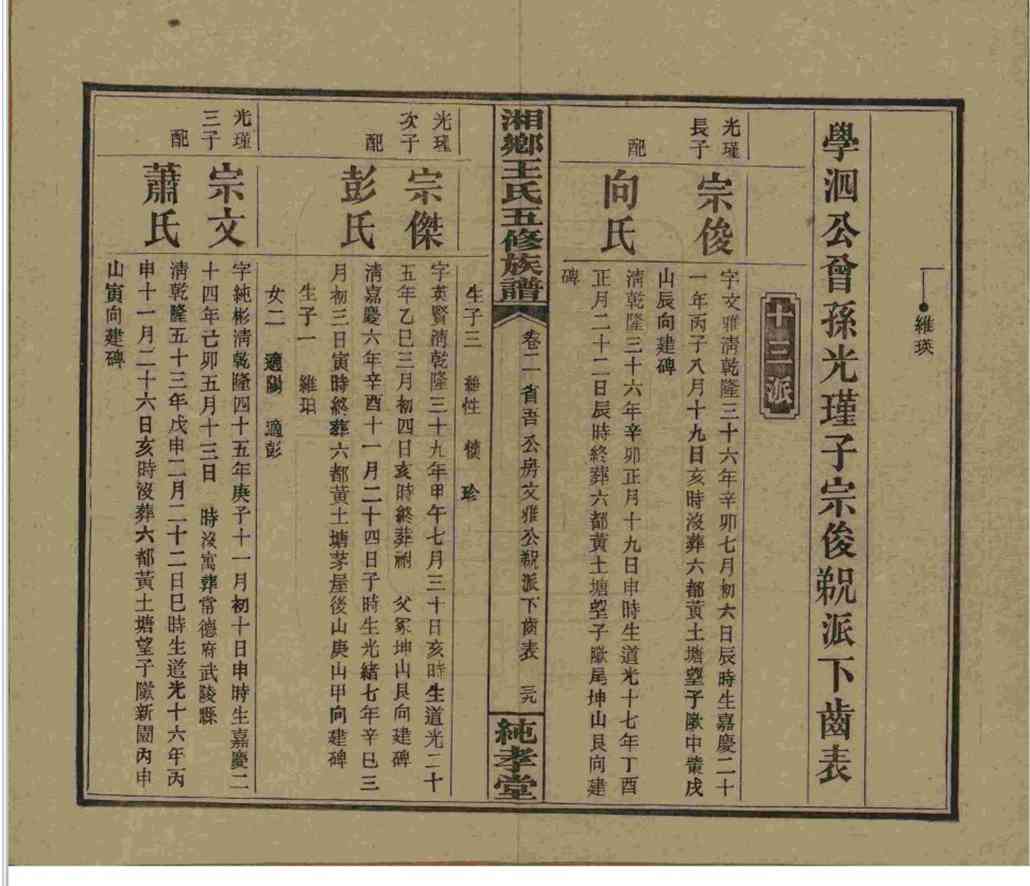 維瑛
學泗公曾孫光瑾子宗俊覡派下齒表
十三派
光瑾
長子
宗俊
字文雅清乾隆三十六年辛卯七月初六日辰時生嘉慶二十
一年丙子八月十九日亥時沒葬六都黃土塘望子歐中嘴戌
山辰向建碑
配
向氏
清乾隆三十六年辛卯正月十九日申時生道光十七年丁酉
正月二十二日辰時終葬六都黃土塘望子歐尾坤山艮向建
碑
湘鄉王氏五修族譜
卷二 省吾公房文雅公覡派下齒表 三九
純孝堂
生子三 維性 珍
光瑾
次子
宗傑
字英賢清乾隆三十九年甲午七月三十日亥時生道光二十
五年乙巳三月初四日亥時終葬祔 父冢坤山艮向建碑
配
彭氏
清嘉慶六年辛酉十一月二十四日子時生光緒七年辛巳三
月初三日寅時終葬六都黃土塘茅屋後山庚山甲向建碑
生子一 維
女二 適陽 適彭
光瑾
三子
宗文
字純彬清乾隆四十五年庚子十一月初十日申時生嘉慶二
十四年己卯五月十三日 時沒寓葬常德府武陵縣
配
蕭氏
清乾隆五十三年戊申二月二十二日巳時生道光十六年丙
申十一月二十六日亥時沒葬六都黃土塘望子歐新圍丙申
山寅向建碑